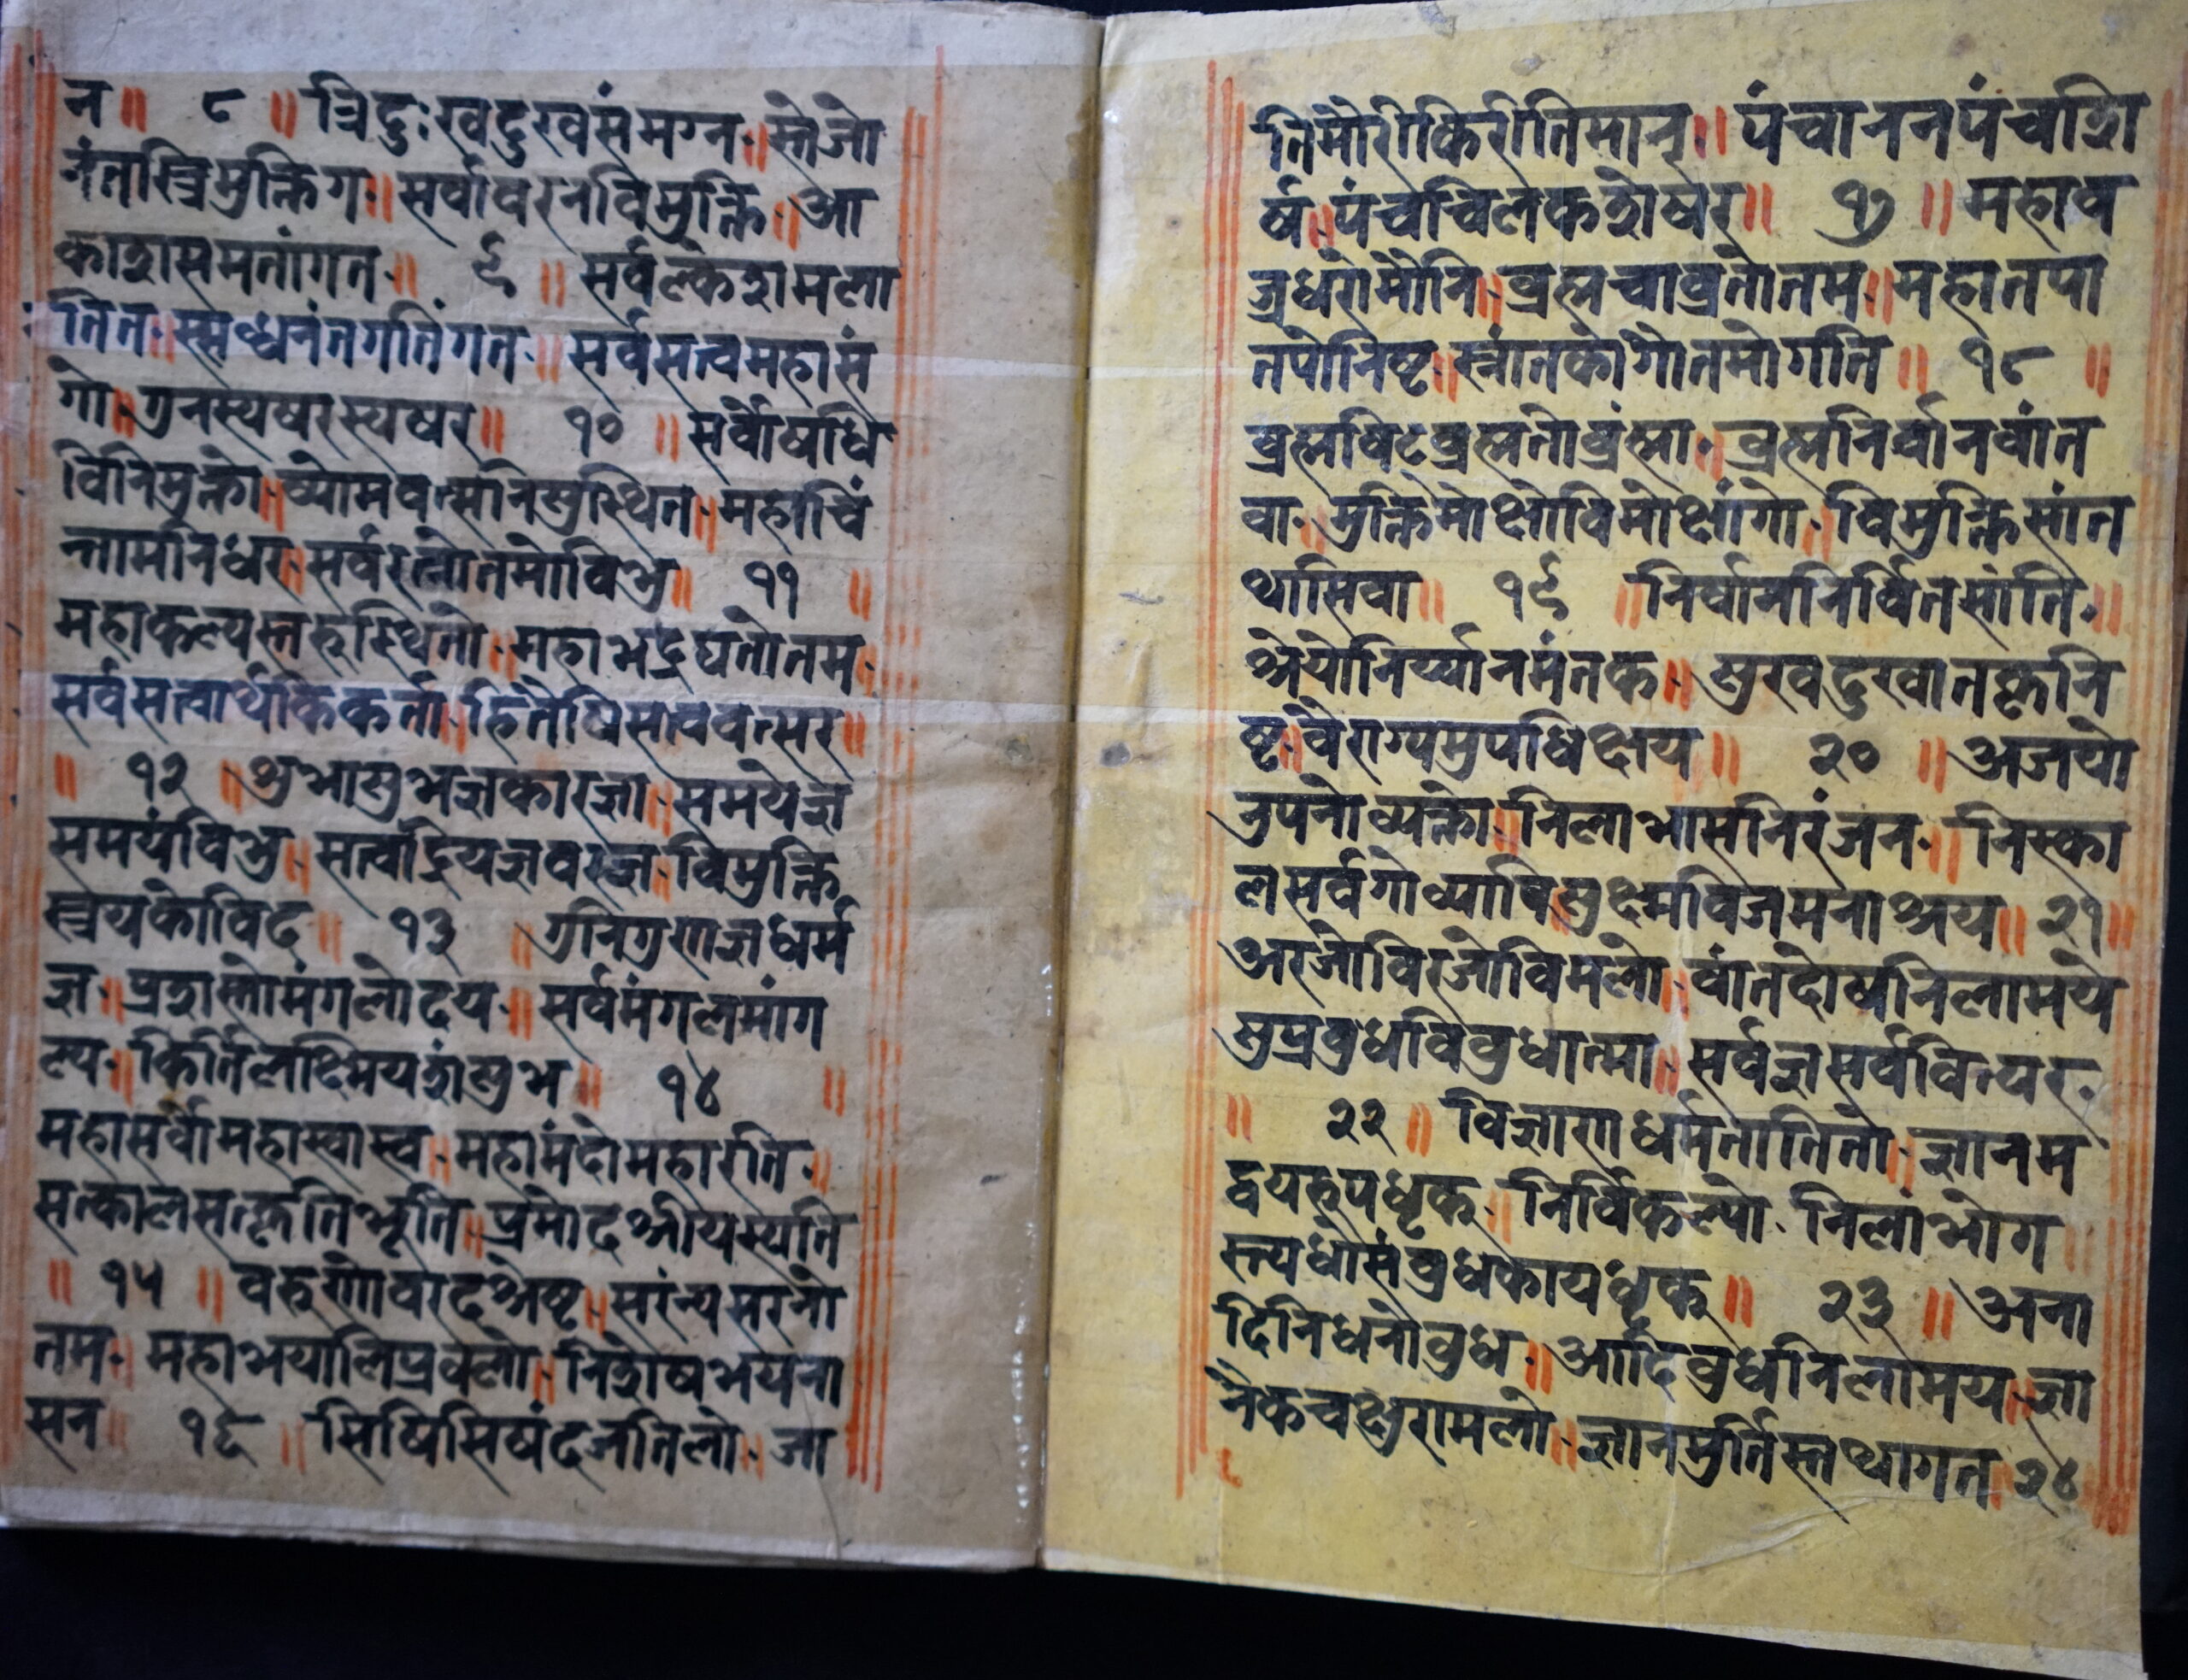 न॥ ८ ॥ त्रिदुःखदुखसंमग्न॥स्तेजो
नंतास्त्रिमुक्तिग॥सर्वावरनविमुक्ति॥आ
काशसमतांगत॥ ९ ॥ सर्वल्केशमला
तित॥स्त्रध्वनंतगतिंगत॥सर्वसत्वमहासं
गो॥गुनस्यषरस्यषर॥ १० ॥सर्वोषधि
विनिमुक्तो॥व्योमवत्सनिसुस्थित॥महाचिं
न्तामनिधर॥सर्वरत्नोतमोविभु॥ ११ ॥
महाकल्पस्तरुस्थितो॥महाभद्रघतोतम॥
सर्वसत्वार्थकिकर्ता॥हितैषिसावत्सर॥
॥ १२ ॥शुभासुभज्ञकारज्ञा॥समयेज्ञ
समयंविभु॥सत्वाद्रियज्ञवरज्ञ॥विमुक्ति
स्त्रयकोविद॥ १३ ॥गुनिगुणज्ञधर्म
ज्ञ॥प्रशस्तोमंगलोदय॥सर्वमंगलमांग
ल्य॥किर्तिलक्ष्मियशंसुभ॥ १४ ॥
महासर्वोमहास्वास्व॥महामंदोमहारति॥
सत्कालसत्कृतिभृति॥प्रमोदश्रीयस्पति
॥ १५ ॥ वरुणोवरदश्रेष्ट॥सरंन्यसरनो
तम॥महाभयालिप्रवलो॥निशेषभयना
सन॥ १६ ॥सिषिसिषंदजतिलो॥जा
तिमोरीकिरीतिमान्॥पंचाननपंचशि
र्ष॥पंचचिलकशेषर॥ १७ ॥महाव
ज्रधरोमौनि॥व्रह्मचाव्रतोतम॥महातपा
तपोनिष्ट॥स्नांतकोगौतमोगति॥ १८ ॥
व्रह्मविटव्रह्मतोव्रंह्मा॥व्रह्मनिर्वानवांत
वा॥मुक्तिमोक्षोविमोक्षांगो॥विमुक्तिसांत
थासिवा॥ १९ ॥निर्वाननिर्वितसांति॥
श्रेयोनिर्य्यानमंतक॥सुखदुखातकृनि
ष्ट॥वैराग्यमुपधिक्षय॥ २० ॥अजयो
नुपनोव्यक्तो॥निलाभासनिरंजन॥निस्का
लसर्वगोव्यापि॥सुक्ष्मविजमनाश्रय॥२१॥
अरजोविरजोविमलो॥वांतदोषनिलामये
सुप्रवुधविवुधात्मा॥सर्वज्ञसर्ववित्पर॥
॥ २२ ॥विज्ञाणधर्मतातितो॥ज्ञानम
द्वयरुपधृक्॥निर्विकल्पो॥निलांभोग
स्त्यधासंवुधकायधृक्॥ २३ ॥अना
दिनिधनोवुध॥आदिवुधनिलामय॥ज्ञा
नैकचक्षुरामलो॥ज्ञानमुर्तिस्तथागत॥२४